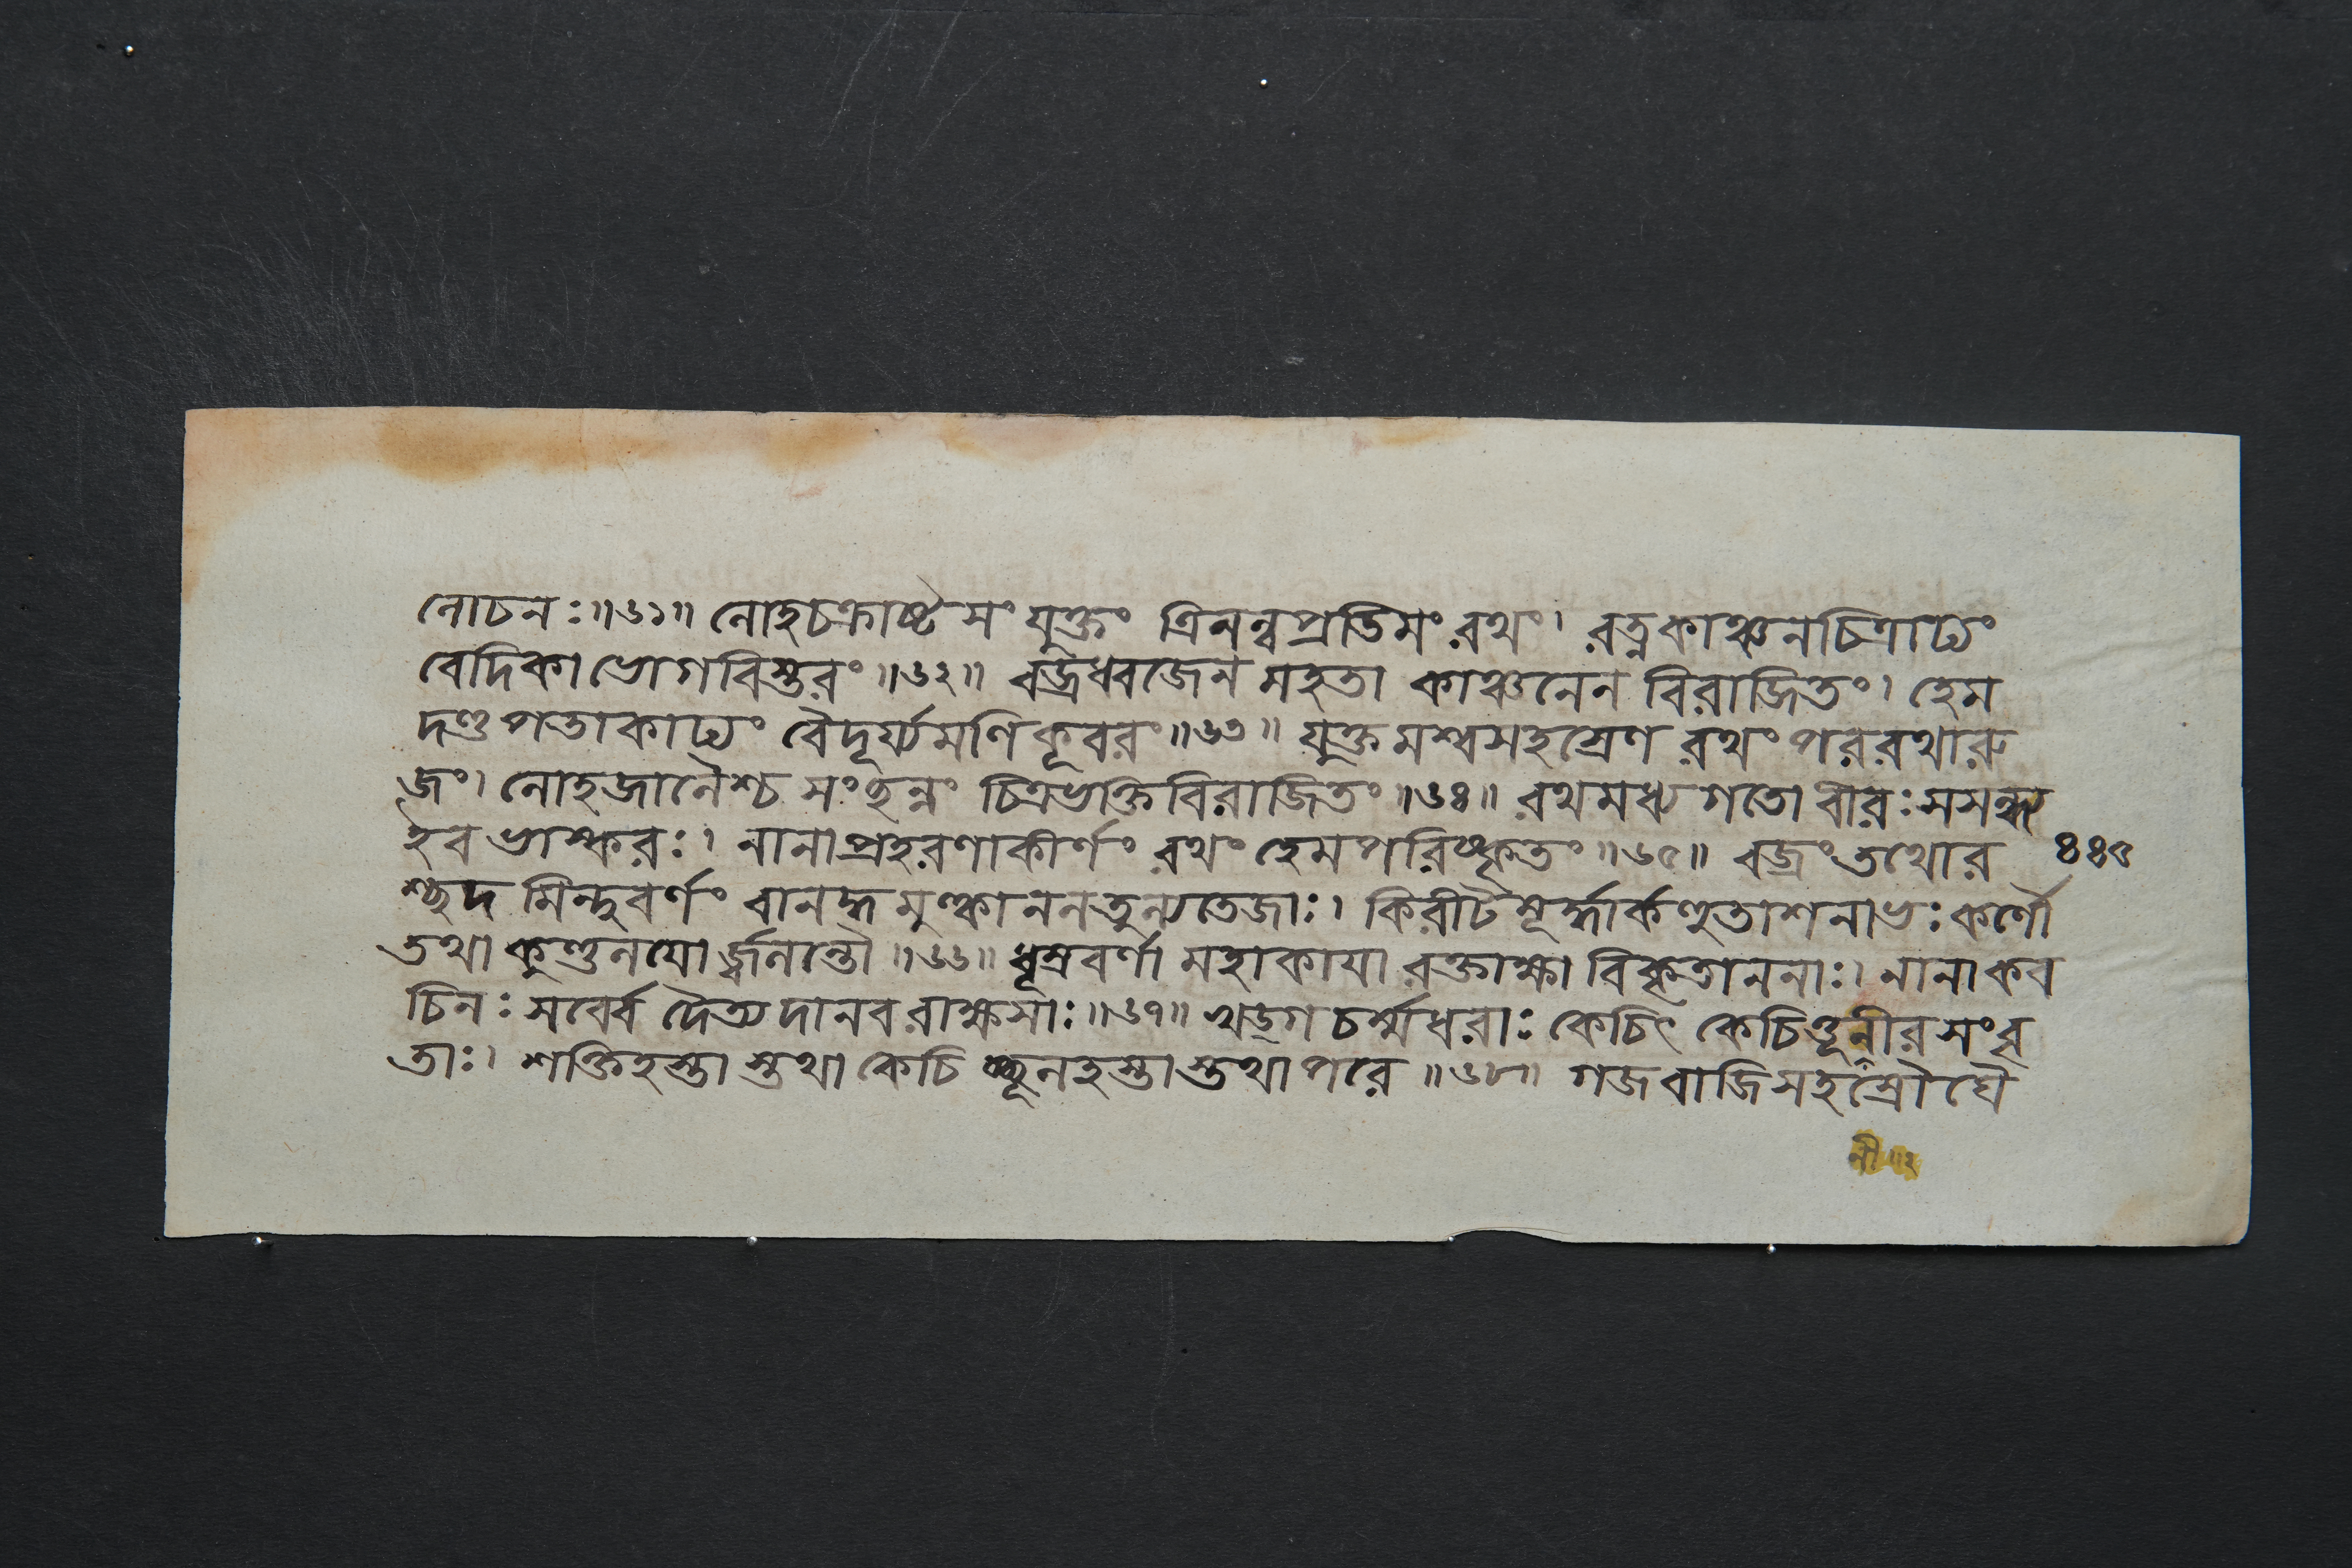 নোচনঃ॥৬১॥ নোহচক্রাষ্টসংযুক্তং ত্রিনল্বপ্রতিমং রথং। রত্নকাঞ্চনচিত্রাঢ্যং
বেদিকাভোগবিস্তরং॥৬২॥ বজ্রধ্বজেন মহতা কাঞ্চনেন বিরাজিতং। হেম
দণ্ডপতাকাঢ্যং বৈদূর্য্যমণিকূবরং॥৬৩॥ যুক্তমশ্বসহস্রেণ রথং পররথারু
জং। নোহজানৈশ্চ সংছন্নং চিত্রভক্তিবিরাজিতং॥৬৪॥ রথমধ্যগতো বীরঃ সসন্ধ্য
ইব ভাস্করঃ। নানাপ্রহরণাকীর্ণং রথং হেমপরিষ্কৃতং॥৬৫॥ বজ্রং তথোর
শ্ছদমিন্দুবর্ণং বানহ্মমুণ্কাননতুন্যতেজাঃ। কিরীটমূর্দ্ধার্কহুতাশনাভঃ কর্ণৌ
তথা কুণ্ডনযোর্জ্জ্বনন্তৌ॥৬৬॥ ধূম্রবর্ণা মহাকাযা রক্তাক্ষা বিকৃতাননাঃ। নানাকব
চিনঃ সর্ব্বে দৈত্যদানবরাক্ষসাঃ॥৬৭॥ খড্গচর্ম্মধরাঃ কেচিৎ কেচিত্তূনীরসংবৃ
তাঃ। শক্তিহস্তাস্তথা কেচিচ্ছূনহস্তাস্তথাপরে॥৬৮॥ গজবাজিসহস্রৌঘৈ
৪৪৫
নী॥২